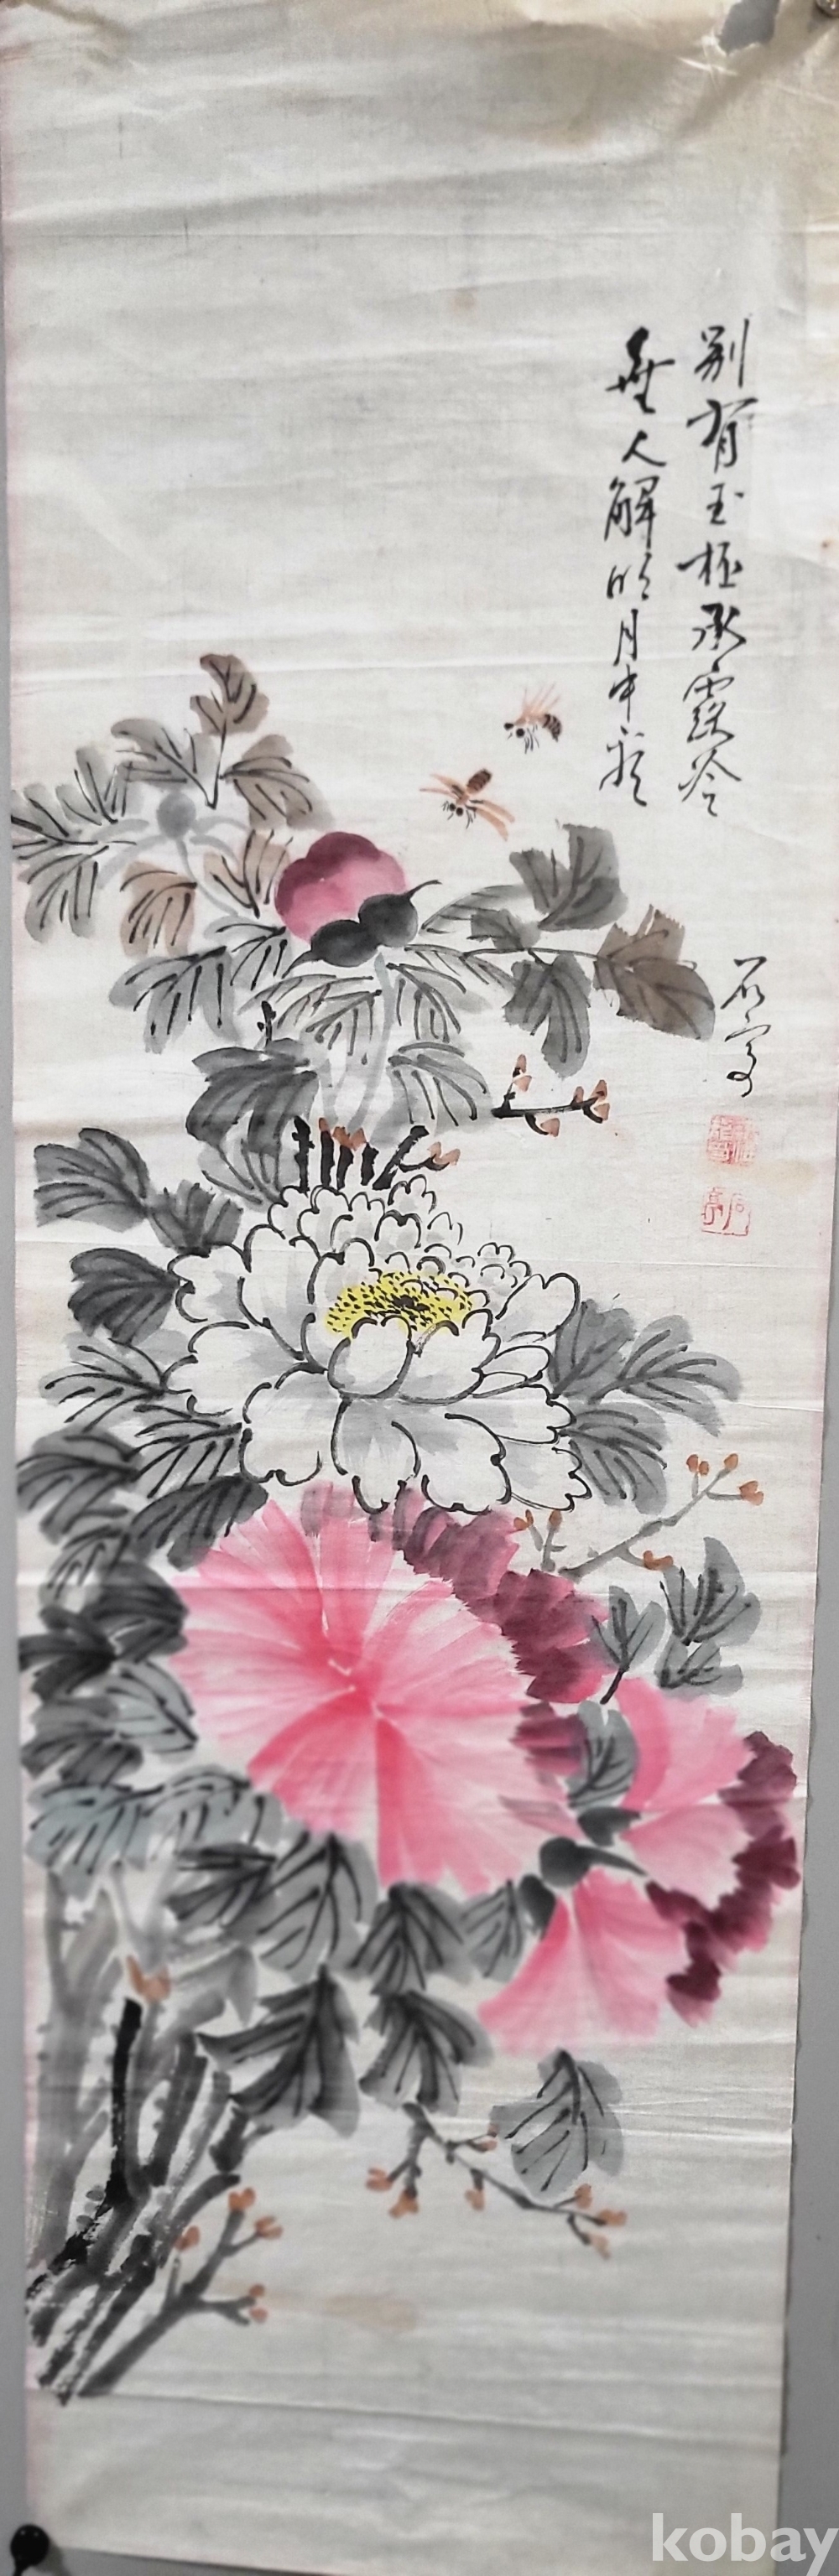 別有玉杯承露冷
無人解向月中看
石寉
kobay